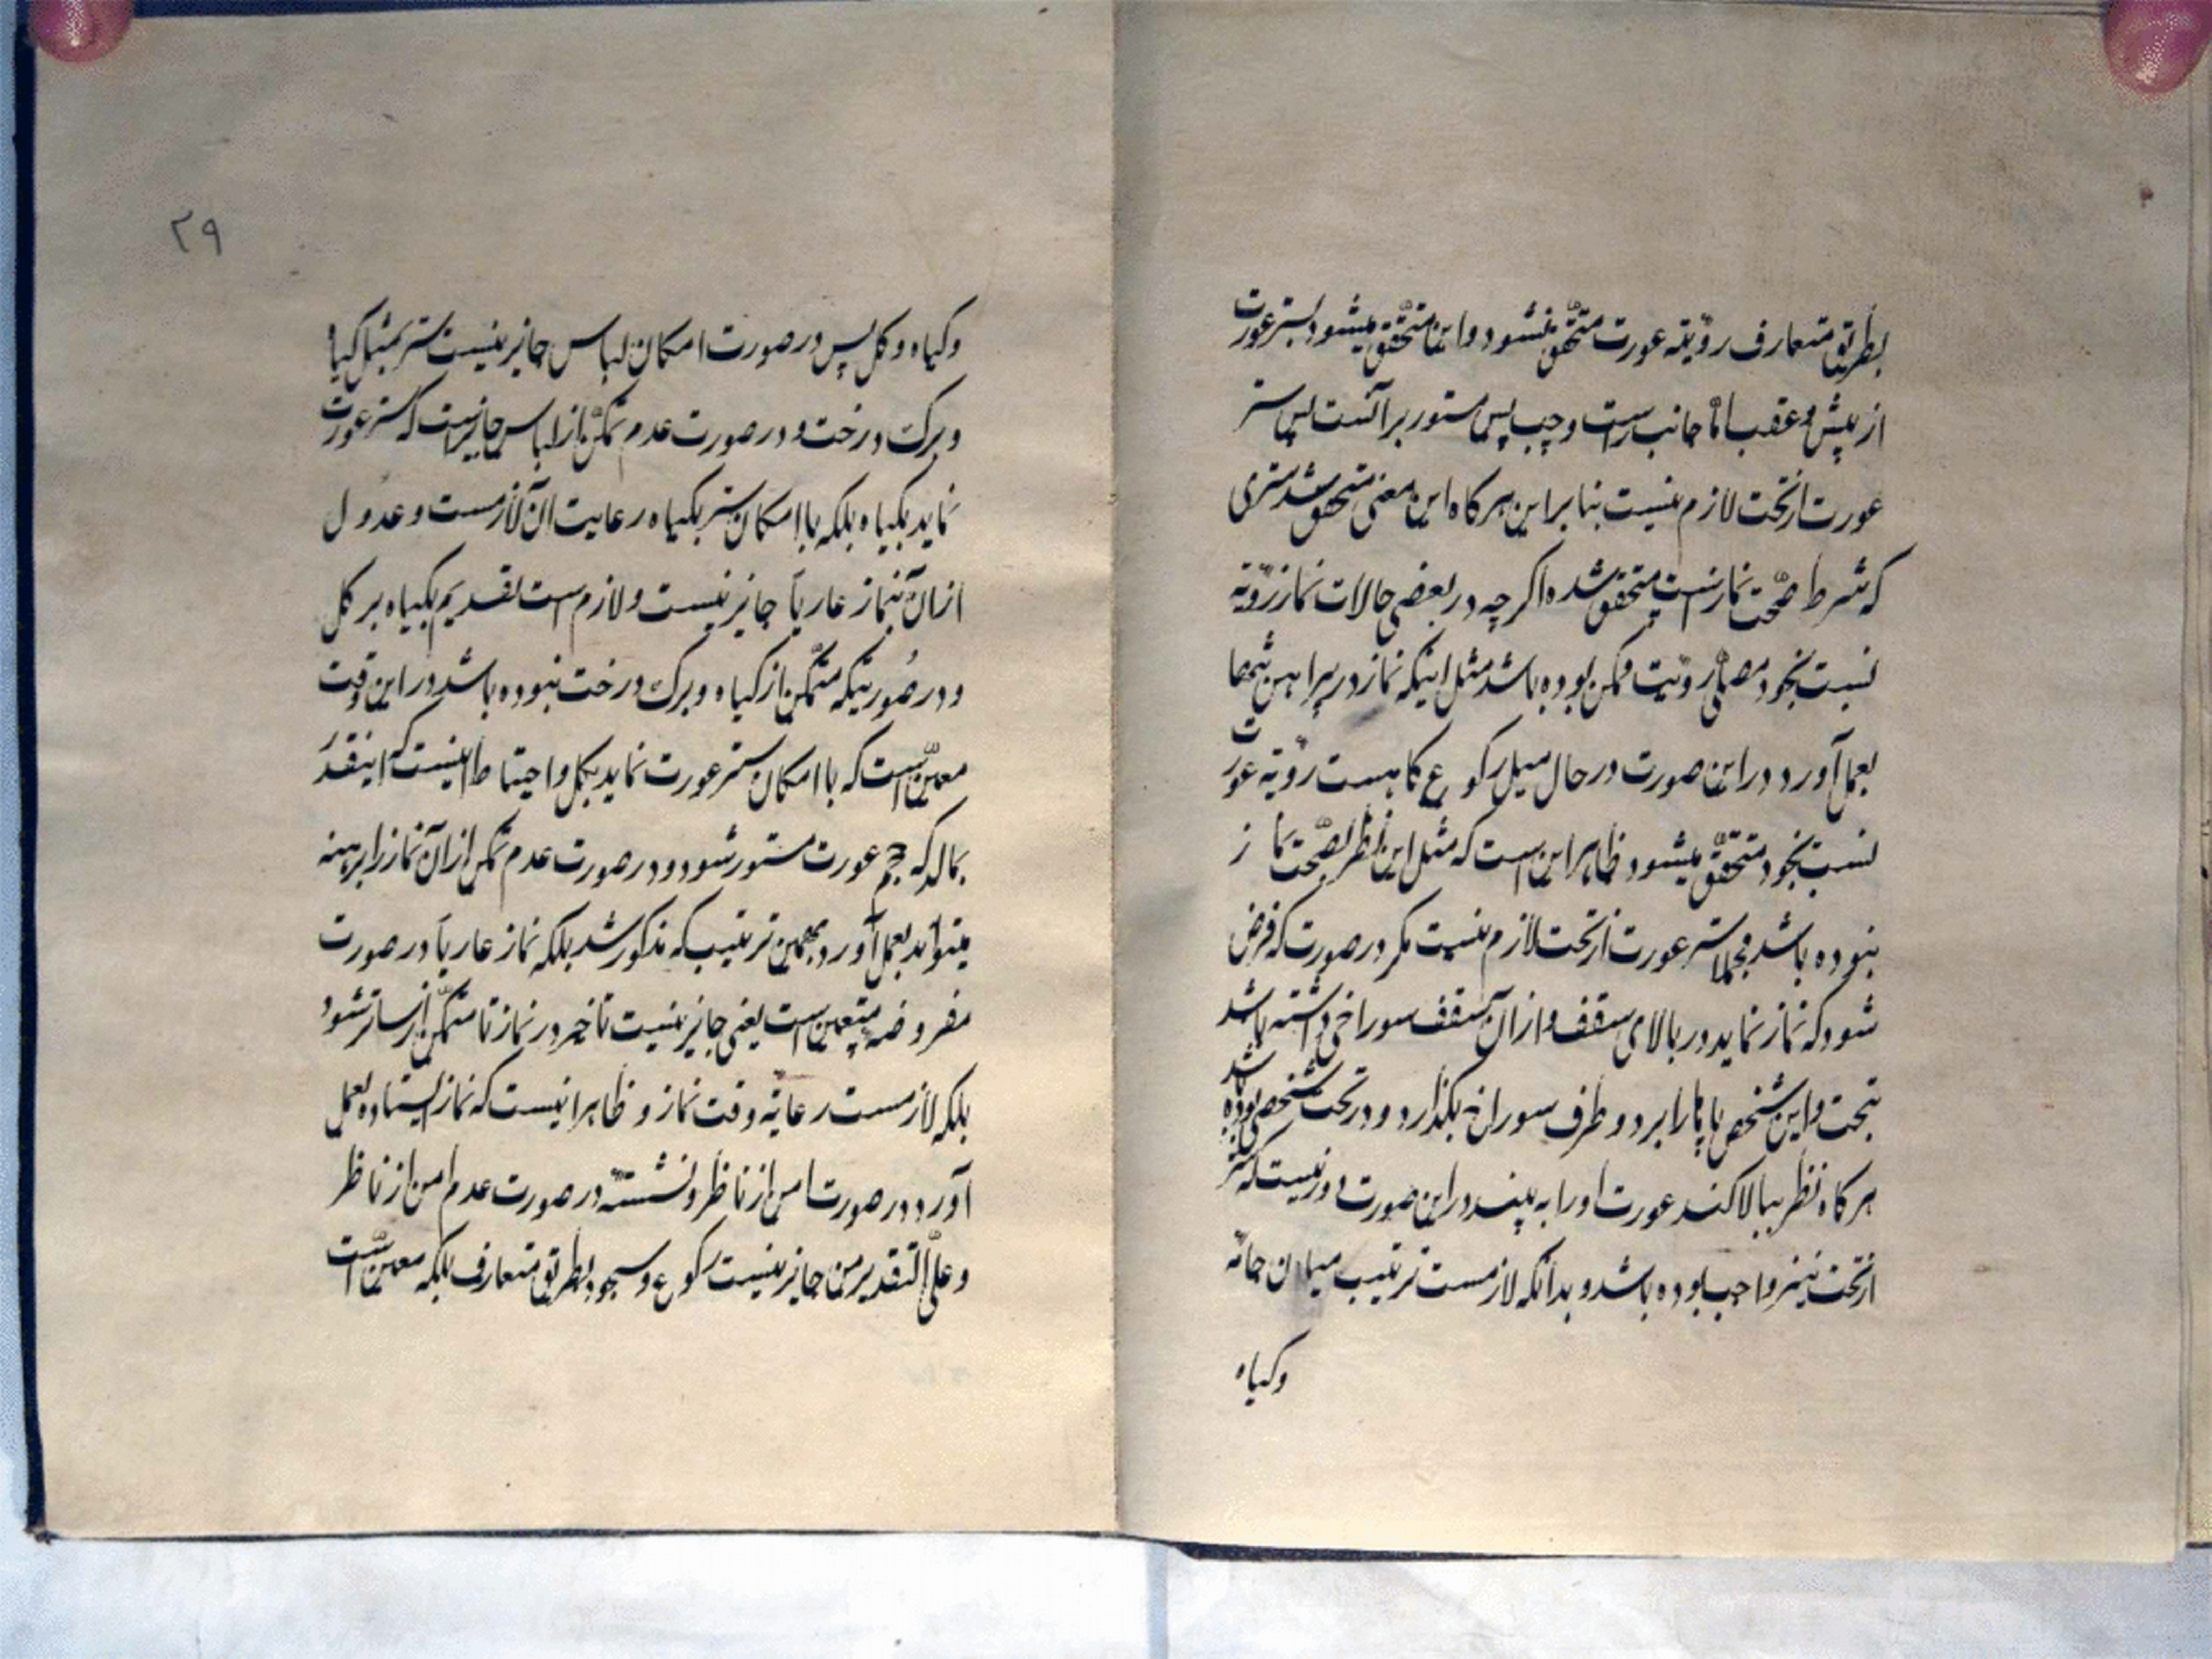 بطریق متعارف رؤیته عورت متحقّق نشود و این متحقّق میشود بستر عورت
از پیش و عقب امّا جانب راست و چپ پس مستور برآنست پس ستر
عورت از تحت لازم نیست بنابراین هرکاه این معنی متحقق شد ستری
که شرط صحّت نماز است متحقق شده اکرچه در بعضی حالات نماز رؤیة
نسبت بخود مصلّی رؤیت ممکن بوده باشد مثل اینکه نماز در پیراهن تنها
بعمل آورد در این صورت در حال میل رکوع کاهست رؤیة عورت
نسبت بخود متحقّق میشود ظاهر این است که مثل این نظر بصحّت نماز
نبوده باشد مجملا ستر عورت از تحت لازم نیست مکر در صورت که فرض
شود که نماز نماید در بالای سقف و ازان سقف سوراخی داشته باشد
بتحت و این شخص پاها را بر دو طرف سوراخ بکذارد و در تحت شخصی بوده باشد
هرکاه نظر ببالا کند عورت او را به بیند در این صورت دور نیست که ستر
از تحت نیز واجب بوده باشد و بدانکه لازمست ترتیب میان جامه
وکیاه
۲۹
وکیاه و کل پس در صورت امکان لباس جایز نیست ستر بمثل کیاه
و برک درخت و در صورت عدم تمکّن از لباس جایز است که ستر عورت
نماید بکیاه بلکه با امکان ستر بکیاه رعایت آن لازمست و عدول
ازان بنماز عاریاً جایز نیست و لازم است تقدیم بکیاه بر کل
و در صُورتیکه متمکّن از کیاه و برک درخت نبوده باشد در این وقت
معیّن است که با امکان ستر عورت نماید بکل و احتیاط انیست که اینقدَر
بمالد که حجم عورت مستور شود و در صورت عدم تمکن ازان نماز را برهنه
میتواند بعمل آورد بهمین ترتیب که مذکور شد بلکه نماز عاریاً در صورت
مفروضه متعین است یعنی جایز نیست تاخیر در نماز تا متمکّن از ساتر شود
بلکه لازمست رعایة وقت نماز و ظاهر انیست که نماز ایستاده بعمل
آورد در صورت امن از ناظر و نشسته در صورت عدم امن از ناظر
و علی التقدیرین جایز نیست رکوع و سجود بطریق متعارف بلکه معیّن است